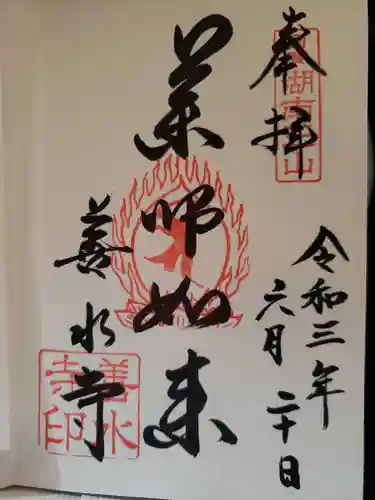 奉拝
湖南
山
令和三年
六月二十日
薬師如来
善水寺
善水
寺印